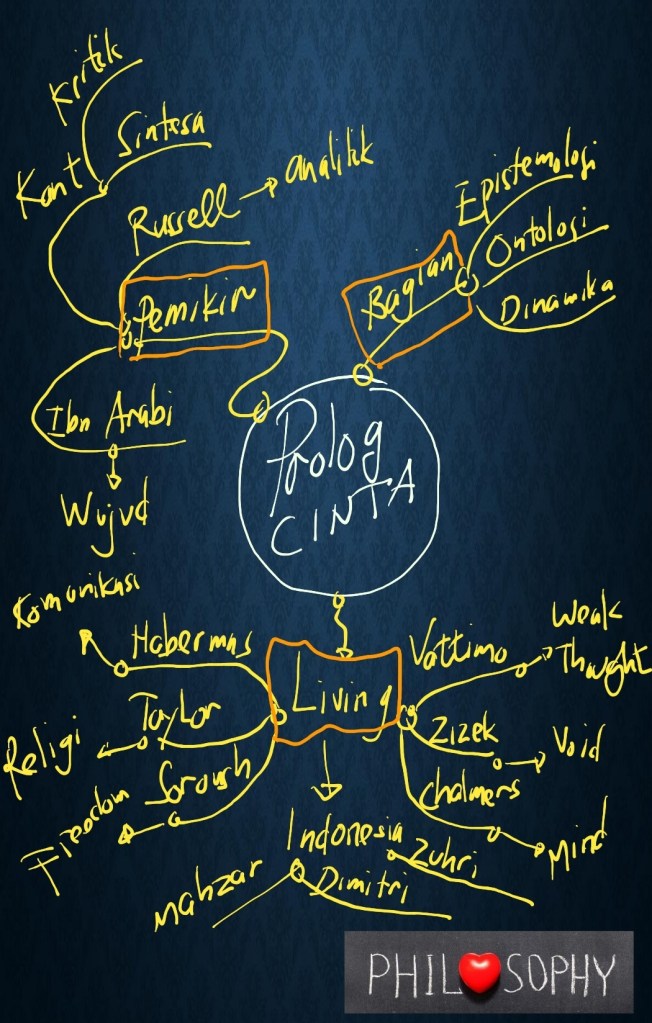 Kritik
Sintesa
Kant
Russell → analitik
Pemikir
Ibn Arabi
Wujud
Epistemologi
Ontologi
Dinamika
Bagian
Prolog
CINTA
Komunikasi
Habermas
Taylor
Religi
Soroush
Freedom
Living
Vattimo
Weak
Thought
Zizek
Void
Chalmers
Mind
Indonesia
Zuhri
Dimitri
Mahzar
PHIL❤SOPHY